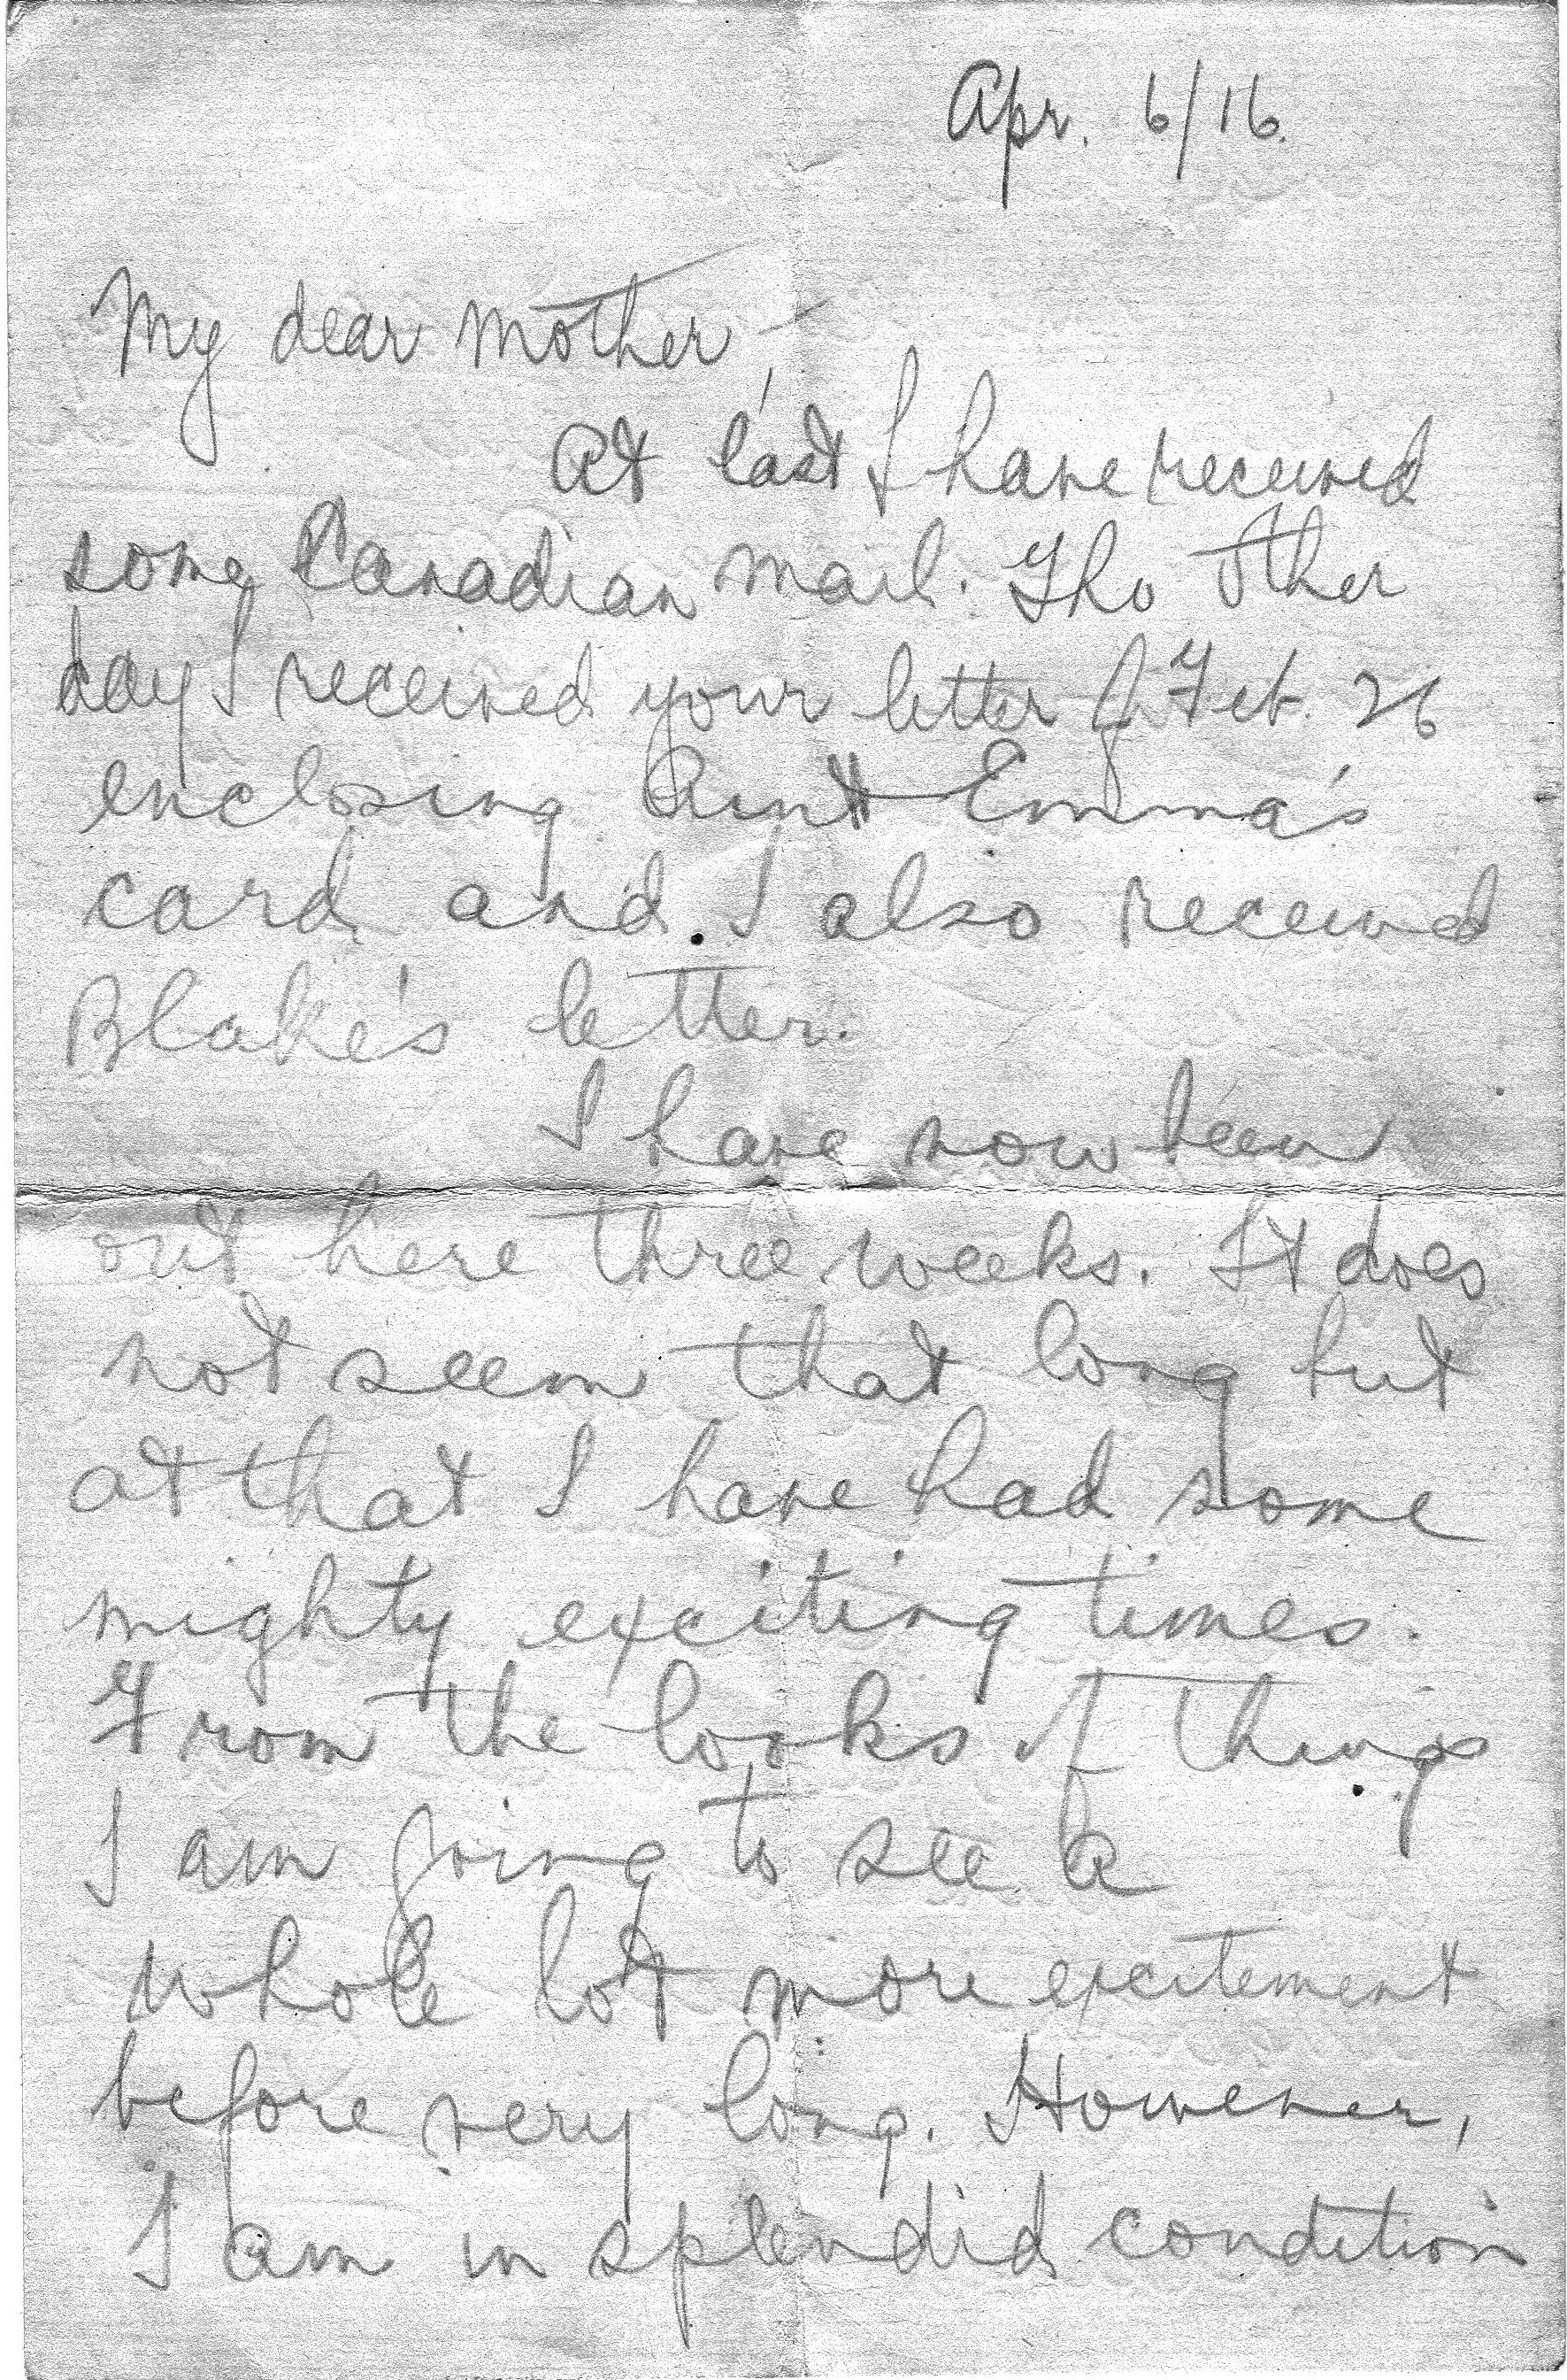 Apr. 6/16.
My dear Mother,—
At last I have received
some Canadian mail. The other
day I received your letter of Feb. 26
enclosing Aunt Emma's
card and I also received
Blake's letter.
I have now been
out here three weeks. It does
not seem that long but
at that I have had some
mighty exciting times.
From the looks of things
I am going to see a
whole lot more excitement
before very long. However,
I am in splendid condition